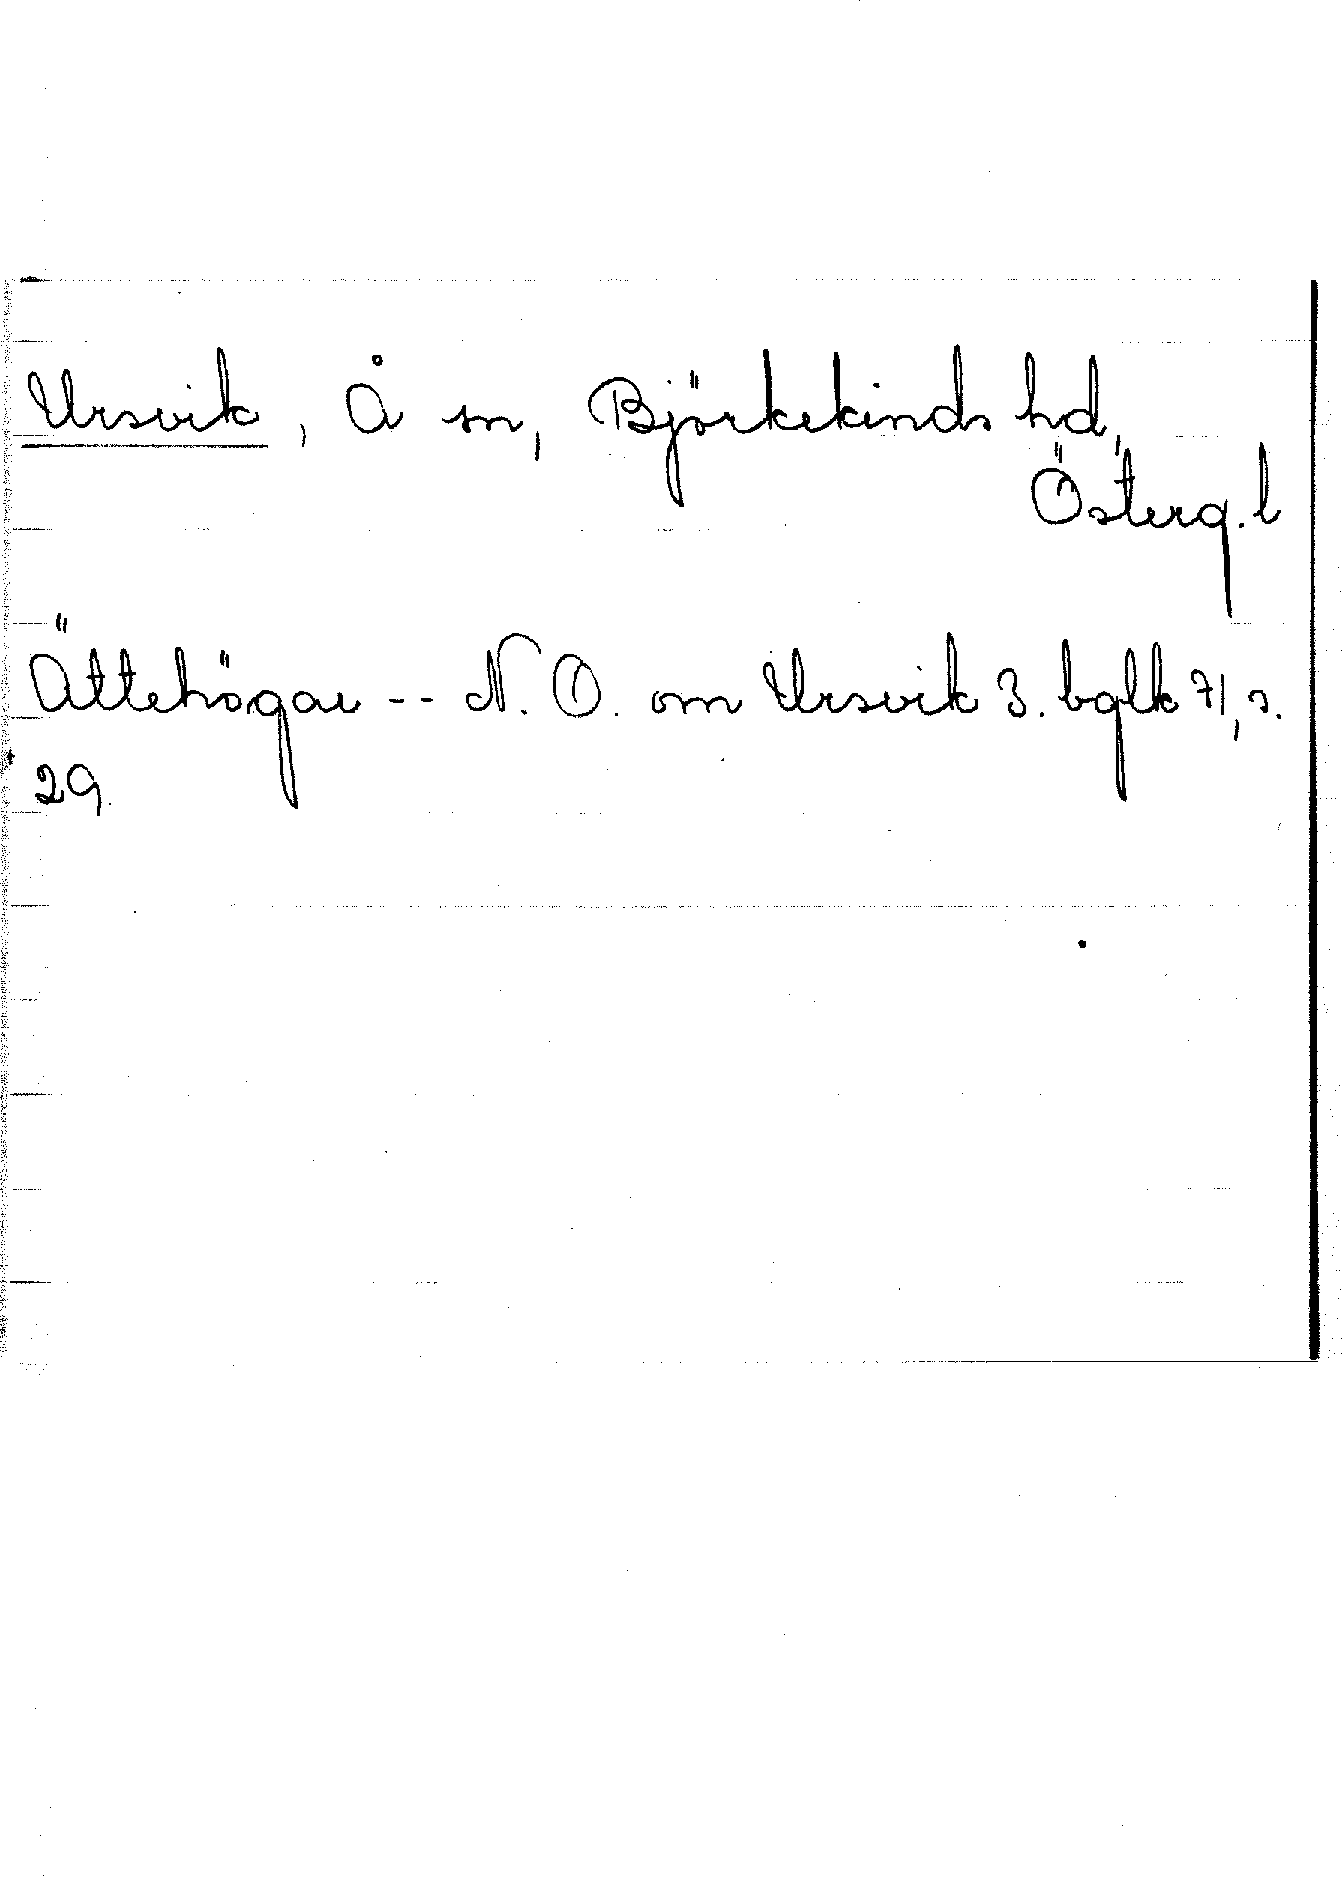 Ursvik, Å sn, Björkekinds hd,
Österg. l
Ättehögar -- N. O. om Ursvik 3. bglk 71, s.
29